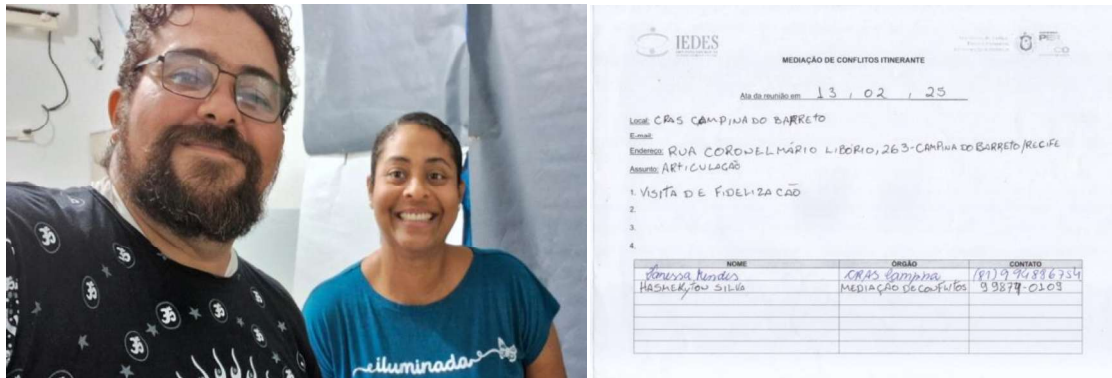 iluminada
IEDES
MEDIAÇÃO DE CONFLITOS ITINERANTE
Ata da reunião em 13, 02, 25
Local: CRAS CAMPINA DO BARRETO
E-mail:
Endereço: RUA CORONEL MÁRIO LIBÓRIO, 263-CAMPINA DO BARRETO/RECIFE
Assunto: ARTICULAÇÃO
1. VISITA DE FIDELIZAÇÃO
2.
3.
4.
NOME ÓRGÃO CONTATO
Vanessa Mendes CRAS Campina (81) 994886754
HASMERTON SILVA MEDIAÇÃO DE CONFLITOS 99874-0109